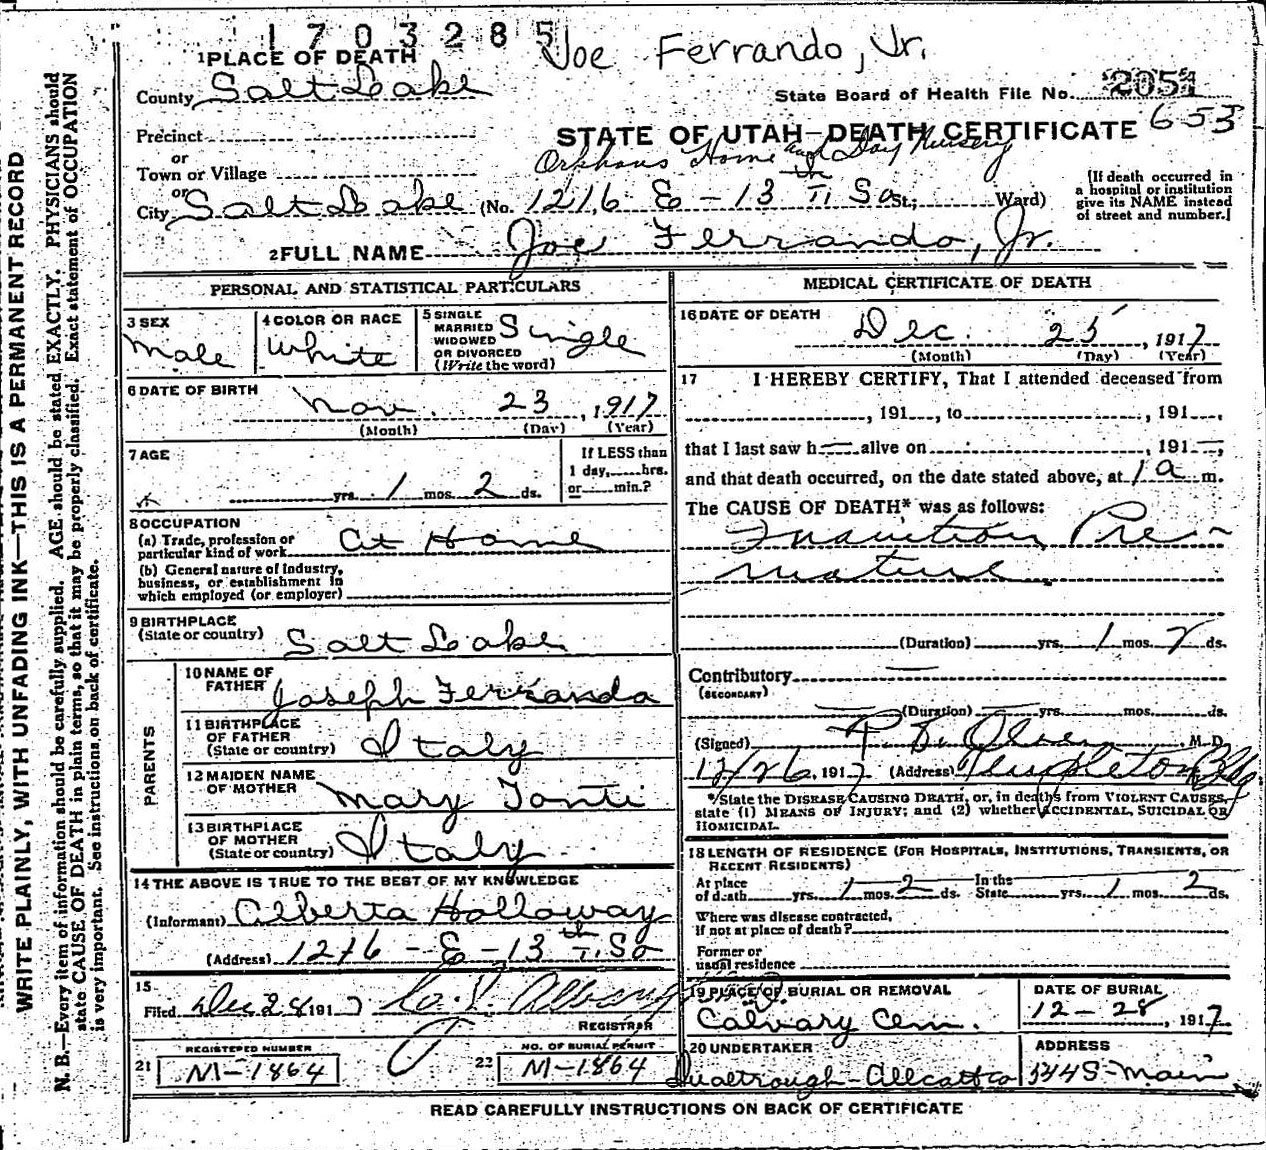 1703285
Joe Ferrando, Jr.
1 PLACE OF DEATH
County Salt Lake
State Board of Health File No. 2054
653
STATE OF UTAH—DEATH CERTIFICATE
Precinct
or
Town or Village
Orphans Home and Day Nursery
or
City Salt Lake (No. 1216 E - 13 th So St.; Ward)
(If death occurred in a hospital or institution give its NAME instead of street and number.)
2 FULL NAME Joe Ferrando, Jr.
PERSONAL AND STATISTICAL PARTICULARS
3 SEX Male
4 COLOR OR RACE White
5 SINGLE MARRIED WIDOWED OR DIVORCED (Write the word) Single
6 DATE OF BIRTH Nov. 23, 1917
(Month) (Day) (Year)
7 AGE yrs. 1 mos. 2 ds.
If LESS than 1 day, hrs. or min.?
8 OCCUPATION
(a) Trade, profession or particular kind of work At Home
(b) General nature of Industry, business, or establishment in which employed (or employer)
9 BIRTHPLACE
(State or country) Salt Lake
PARENTS
10 NAME OF FATHER Joseph Ferranda
11 BIRTHPLACE OF FATHER (State or country) Italy
12 MAIDEN NAME OF MOTHER Mary Tonti
13 BIRTHPLACE OF MOTHER (State or country) Italy
14 THE ABOVE IS TRUE TO THE BEST OF MY KNOWLEDGE
(Informant) Alberta Holloway
(Address) 1216 - E - 13 th So
15
Filed Dec 28 1917
REGISTRAR
REGISTERED NUMBER
21 M-1864
NO. OF BURIAL PERMIT
22 M-1864
MEDICAL CERTIFICATE OF DEATH
16 DATE OF DEATH Dec. 25, 1917
(Month) (Day) (Year)
17 I HEREBY CERTIFY, That I attended deceased from
, 191 , to , 191 ,
that I last saw h alive on , 191 ,
and that death occurred, on the date stated above, at 1 a m.
The CAUSE OF DEATH* was as follows:
Inanition Pre-
mature
(Duration) yrs. 1 mos. 2 ds.
Contributory
(SECONDARY)
(Duration) yrs. mos. ds.
(Signed) M. D.
12/26, 1917 (Address) Templeton Bldg
*State the DISEASE CAUSING DEATH, or, in deaths from VIOLENT CAUSES,
state (1) MEANS OF INJURY; and (2) whether ACCIDENTAL, SUICIDAL OR
HOMICIDAL.
18 LENGTH OF RESIDENCE (FOR HOSPITALS, INSTITUTIONS, TRANSIENTS, OR
RECENT RESIDENTS)
At place of death yrs. 1 mos. 2 ds. In the State yrs. 1 mos. 2 ds.
Where was disease contracted,
if not at place of death?
Former or
usual residence
19 PLACE OF BURIAL OR REMOVAL
Calvary Cem.
DATE OF BURIAL
12-28, 1917
20 UNDERTAKER
ADDRESS
344 S-Main
READ CAREFULLY INSTRUCTIONS ON BACK OF CERTIFICATE
WRITE PLAINLY, WITH UNFADING INK—THIS IS A PERMANENT RECORD
N. B.—Every item of information should be carefully supplied. AGE should be stated EXACTLY. PHYSICIANS should
state CAUSE OF DEATH in plain terms, so that it may be properly classified. Exact statement of OCCUPATION
is very important. See instructions on back of certificate.